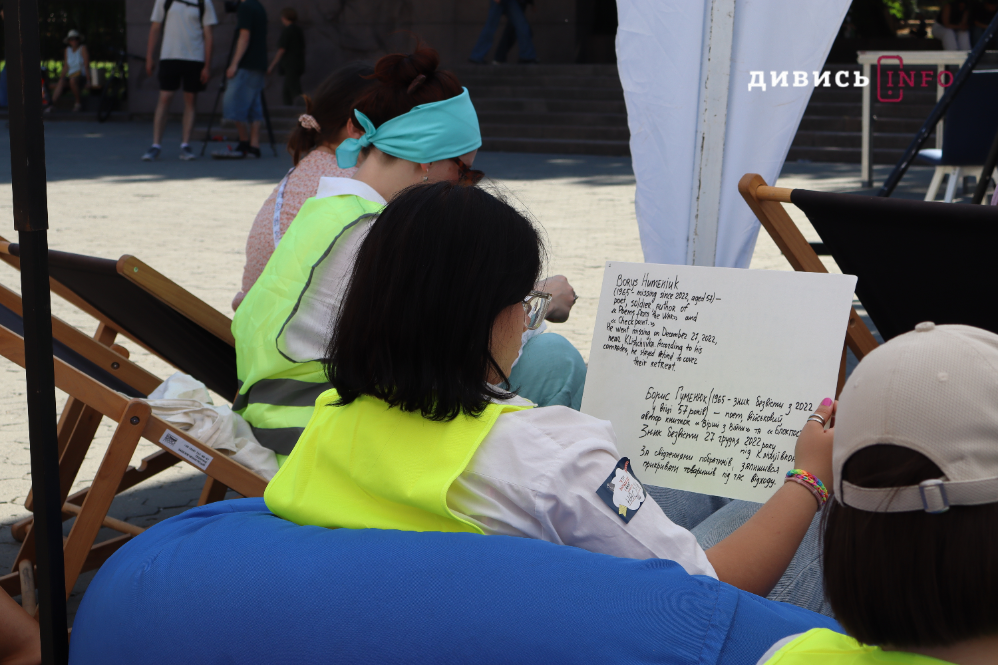 ДИВИСЬ INFO
Borys Humeniuk
(1965 - missing since 2022, aged 57) —
poet, soldier, author of
«Poems from the War» and
«Checkpoint.»
He went missing on December 27, 2022,
near Klishchiivka. According to his
comrades, he stayed behind to cover
their retreat.
Борис Гуменюк (1965 - зник безвісти з 2022
у віці 57 років) — поет, військовий
автор книжок «Вірші з війни» та «Блокпост
Зник безвісти 27 грудня 2022 року
під Кліщіївкою
За свідченнями побратимів, залишився
прикривати товаришів під час відходу.